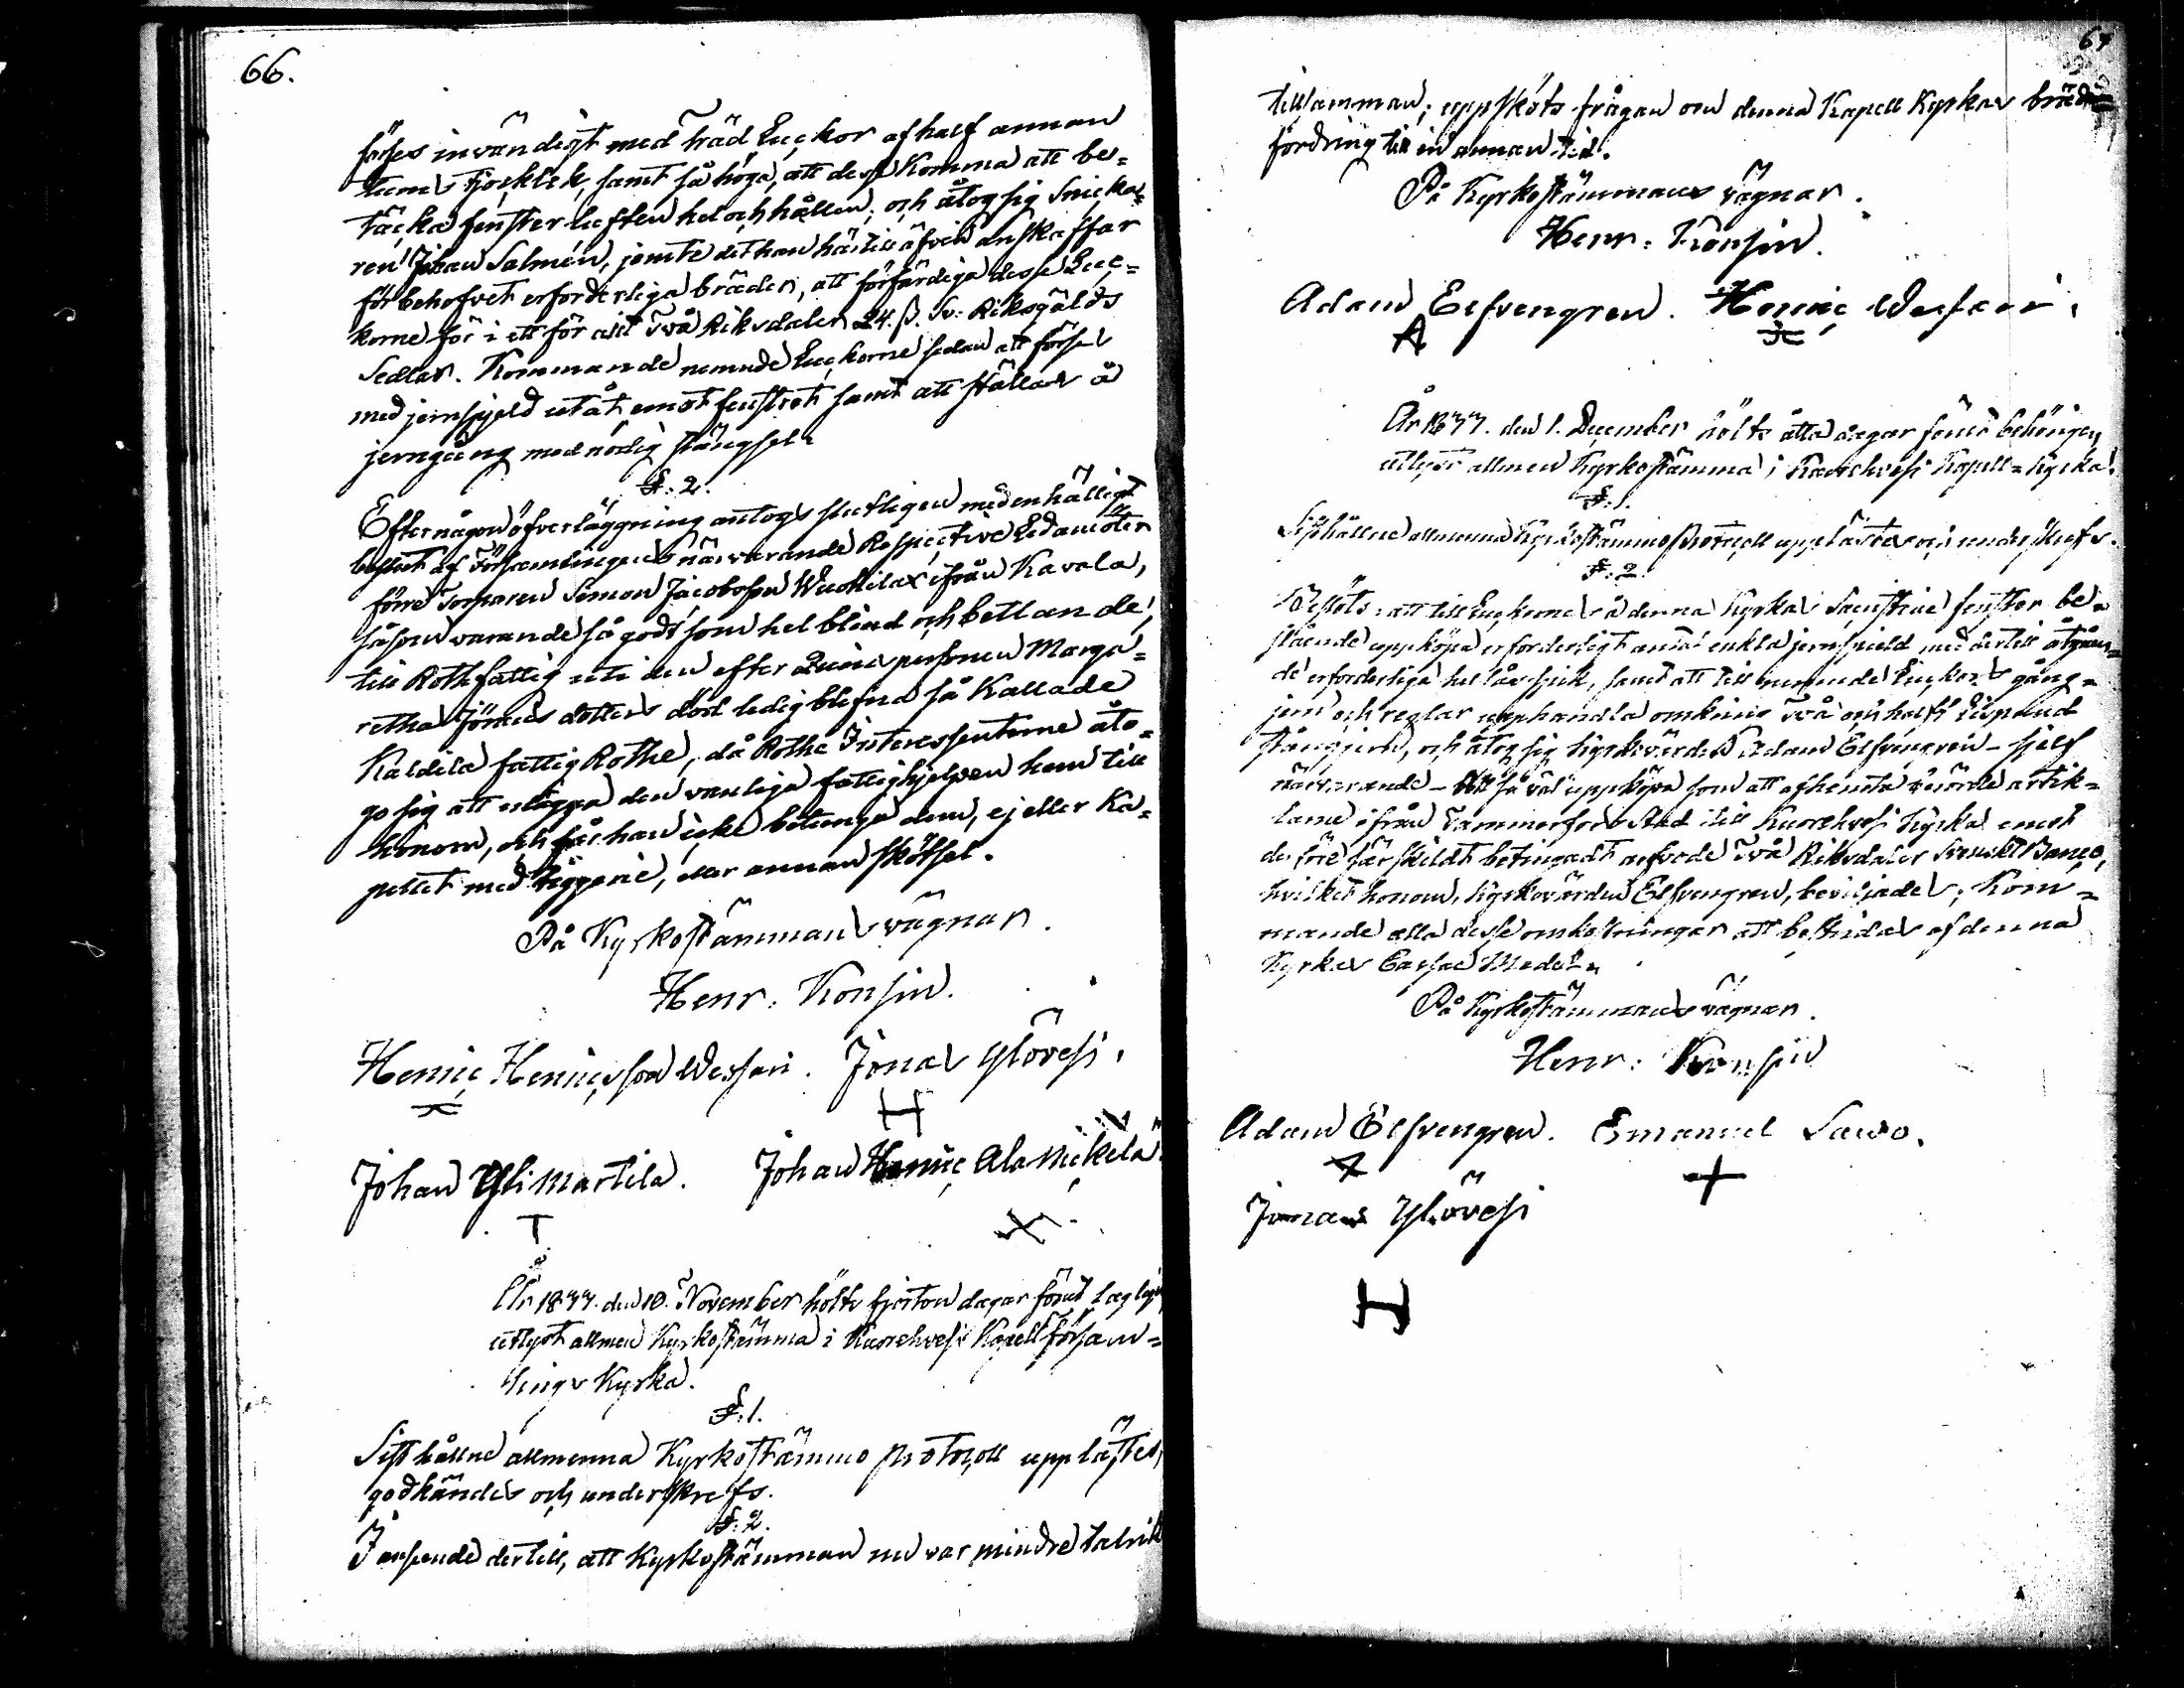 66.
förses invändigt med träd Luckor af half annan
tums tjocklek, samt så höga, att desse komma att be=
täcka fenster luften hel och hållen; och åtog sig Snicka=
ren Johan Salmén, jemte det han härtill äfven anskaffar
för behofvet erforderliga bräder, att förfärdiga desse Luc=
korne för i ett för allt två Riksdaler 24. ß. Sv: Riksgälds
Sedlar. Kommande nemnde Luckorne sedan att förses
med jernspjeld utåt emot fenstret samt att ställas å
jerngång med nödig stängsel.
§. 2.
Efter någon öfverläggning antogs slutligen med enhälligt
beslut af Församlingens närvarande Respective Ledamöter
förre Torparen Simon Jacobsson Wuollilax ifrån Kavala,
såsom varande så godt som hel blind och bettlande,
till Rothfattig uti den efter Qvinnspersonen Marga=
retha Jöransdotters död ledig blefna så kallade
Kaldila fattig Rothe, då Rothe Interessenterne åto=
go sig att utlägga den vanliga fattighjelpen hem till
honom, och får han icke betunga dem, ej eller Ka=
pellet med tiggeri, eller annan skötsel.
På Kyrkostämmans vägnar.
Henr: Konsin.
Henric Henricsson Wessari. Jonas Ylövesi.
Johan Yli Martila. Johan Henric Ala Mickela
År 1833. den 10. November hölts fjorton dagar förut lagligen
utlyst allmen Kyrkostämma i Kuorehvesi Kapellförsam=
lings Kyrka.
§. 1.
Sist hållne allmenna Kyrkostämmo protocoll upplästes,
godkändes och underskrefs.
§. 2.
I anseende dertill, att Kyrkostämman nu var mindre talrik
67
tillsamman; uppsköts frågan om denna Kapell Kyrkas
fordring till en annan tid.
På Kyrkostämmans vägnar.
Henr: Konsin.
Adam Elfvengren. Henric Wessari.
År 1833. den 1. December hölts åtta dagar förut behörigen
utlyst allmen Kyrkostämma i Kuorehvesi Kapell=Kyrka.
§. 1.
Sisthållne allmenna Kyrkostämmo Protocoll upplästes och underskrefs.
§. 2.
Beslöts: att till Luckorne å denna Kyrkas Sacristiae fenster be=
stående uppköpa erforderligt antal enkla jernspjeld med dertill åtgåen=
de erforderliga spik, samt att till nemnde Luckors gång=
jern och reglar upphandla omkring två och halft Lispund
stångjern, och åtog sig Kyrkovärden Adam Elfvengren - sjelf
närvarande - att så väl uppköpa som att afhemta berörde artik=
larne ifrån Tammerfors Stad till Kuorehvesi Kyrka emot
derföre särskildt betingadt arfvode två Riksdaler Svenskt Banco,
hvilket honom, Kyrkovärden Elfvengren, beviljades; Kom=
mande alla desse omkostningar att bestridas af denna
Kyrkas Cassae Medel.
På Kyrkostämmans vägnar.
Henr: Konsin
Adam Elfvengren. Emanuel Sawo.
Jonas Ylövesi